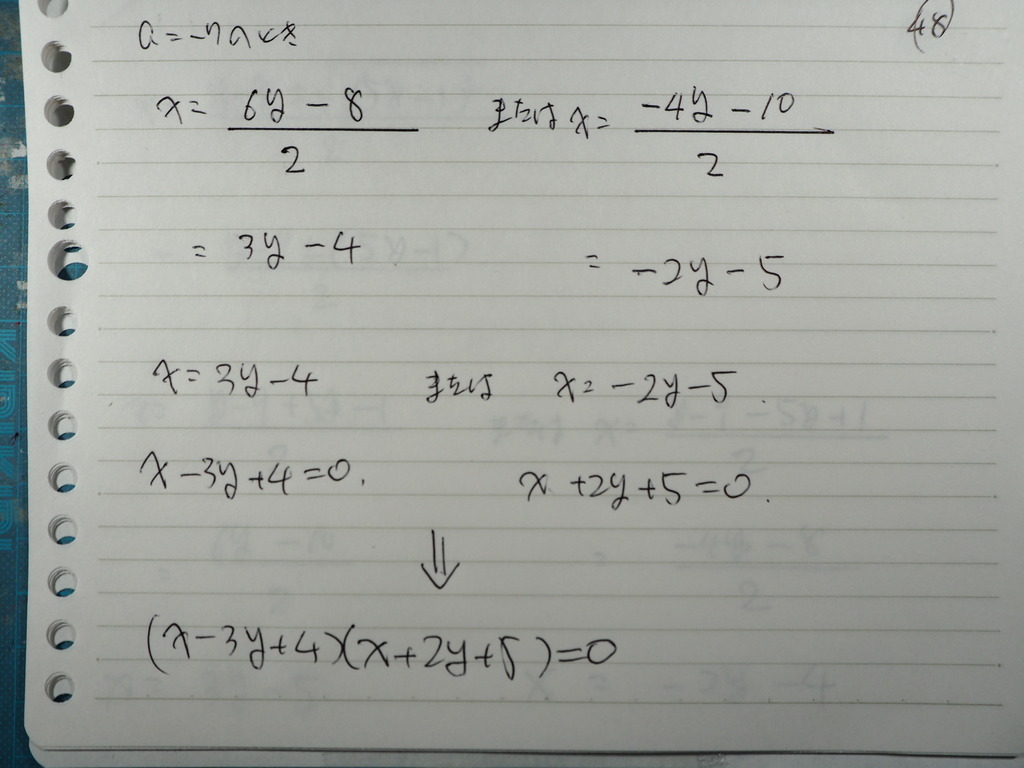 (48)
a = -7 のとき
x = (6y - 8)/2 または x = (-4y - 10)/2
= 3y - 4 = -2y - 5
x = 3y - 4 または x = -2y - 5.
x - 3y + 4 = 0. x + 2y + 5 = 0.
⇓
(x - 3y + 4)(x + 2y + 5) = 0